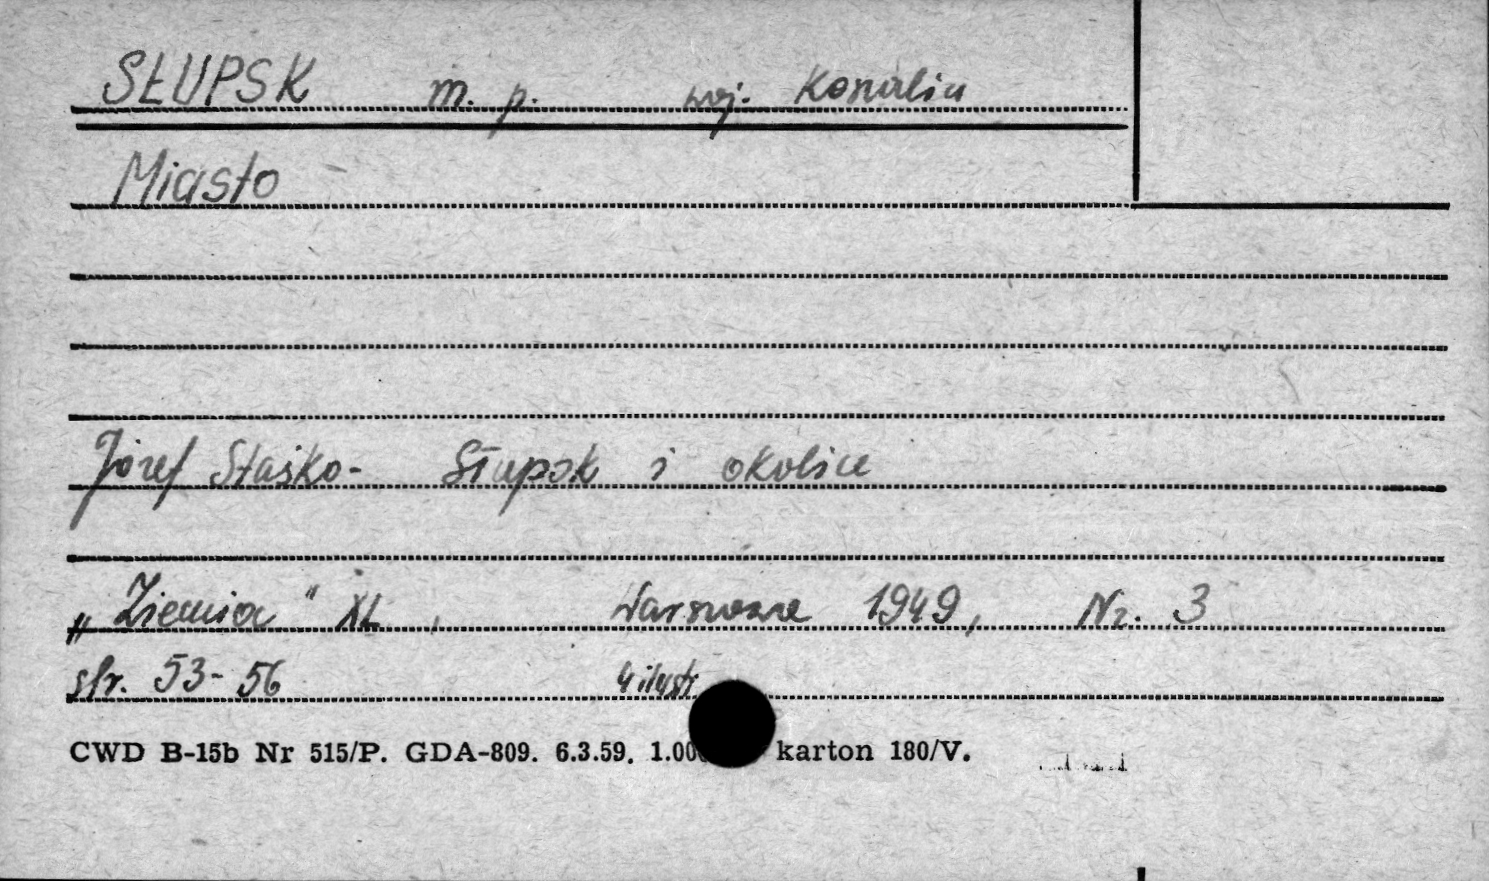 SŁUPSK m. p. woj. Koszalin
Miasto
Józef Staśko - Słupsk i okolice
„Ziemia" XL, Warszawa 1949, Nr. 3
str. 53-56 4 ilustr.
CWD B-15b Nr 515/P. GDA-809. 6.3.59. 1.00 karton 180/V.